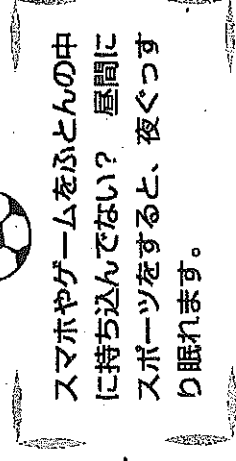 スマホやゲームをふとんの中
に持ち込んでない？　昼間に
スポーツをすると、夜ぐっす
り眠れます。